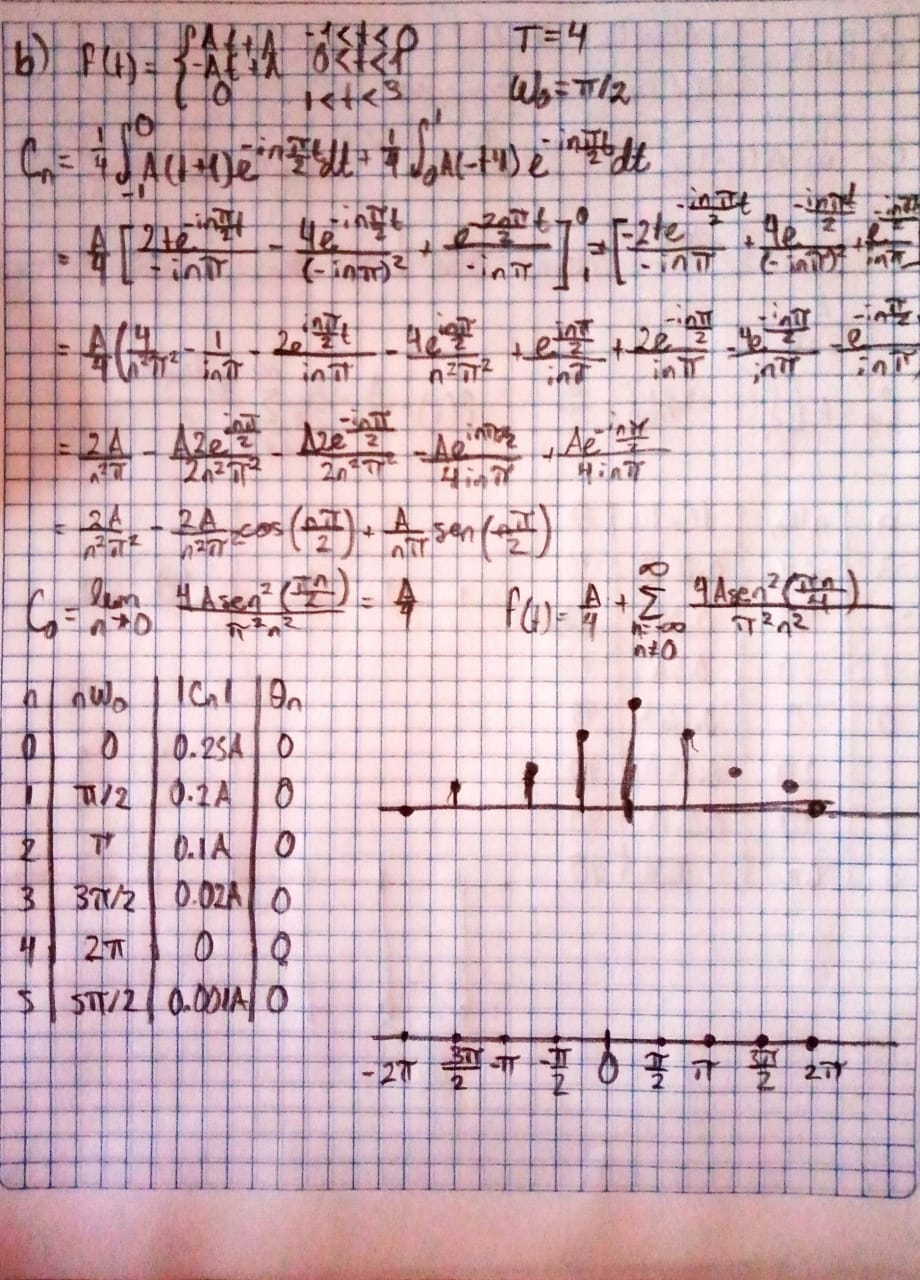 b) f(t) = { At+A -1<t<0 T=4
-At+A 0<t<1
0 1<t<3 W₀=π/2
Cn = 1/4 ∫₋₁⁰ A(t+1)e^(-inπ/2 t) dt + 1/4 ∫₀¹ A(-t+1) e^(-inπ/2 t) dt
= A/4 [ 2te^(-inπ/2 t)/(-inπ) - 4e^(-inπ/2 t)/(-inπ)² + e^(-2nπ/2 t)/(-inπ) ] + [ -2te^(-inπ/2 t)/(-inπ) + 4e^(-inπ/2)/(-inπ)² + e^(-inπ/2)/inπ
= A/4 ( 4/n²π² - 1/inπ - 2e^(inπ/2 t)/inπ - 4e^(inπ/2)/n²π² + e^(inπ/2)/inπ + 2e^(-inπ/2)/inπ - 4e^(-inπ/2)/inπ - e^(-inπ/2)/inπ
= 2A/n²π - A2e^(inπ/2)/2n²π² - A2e^(-inπ/2)/2n²π² - Ae^(inπ/2)/4inπ + Ae^(-inπ/2)/4inπ
= 2A/n²π² - 2A/n²π² cos(nπ/2) + A/nπ sen(nπ/2)
C₀ = lim n→0 4Asen²(πn/2)/π²n² = A/4 f(t) = A/4 + Σ n=-∞ n≠0 ∞ 4Asen²(πn/4)/π²n²
n nW₀ |Cn| θn
0 0 0.25A 0
1 π/2 0.2A 0
2 π 0.1A 0
3 3π/2 0.02A 0
4 2π 0 0
5 5π/2 0.001A 0
-2π -3π/2 -π -π/2 0 π/2 π 3π/2 2π